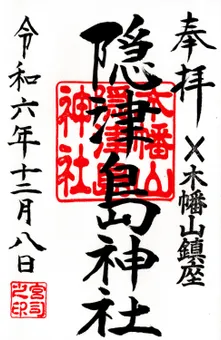 奉拝
木幡山鎮座
隠津島神社
木幡山
隠津島
神社
令和六年十二月八日
宮司之印